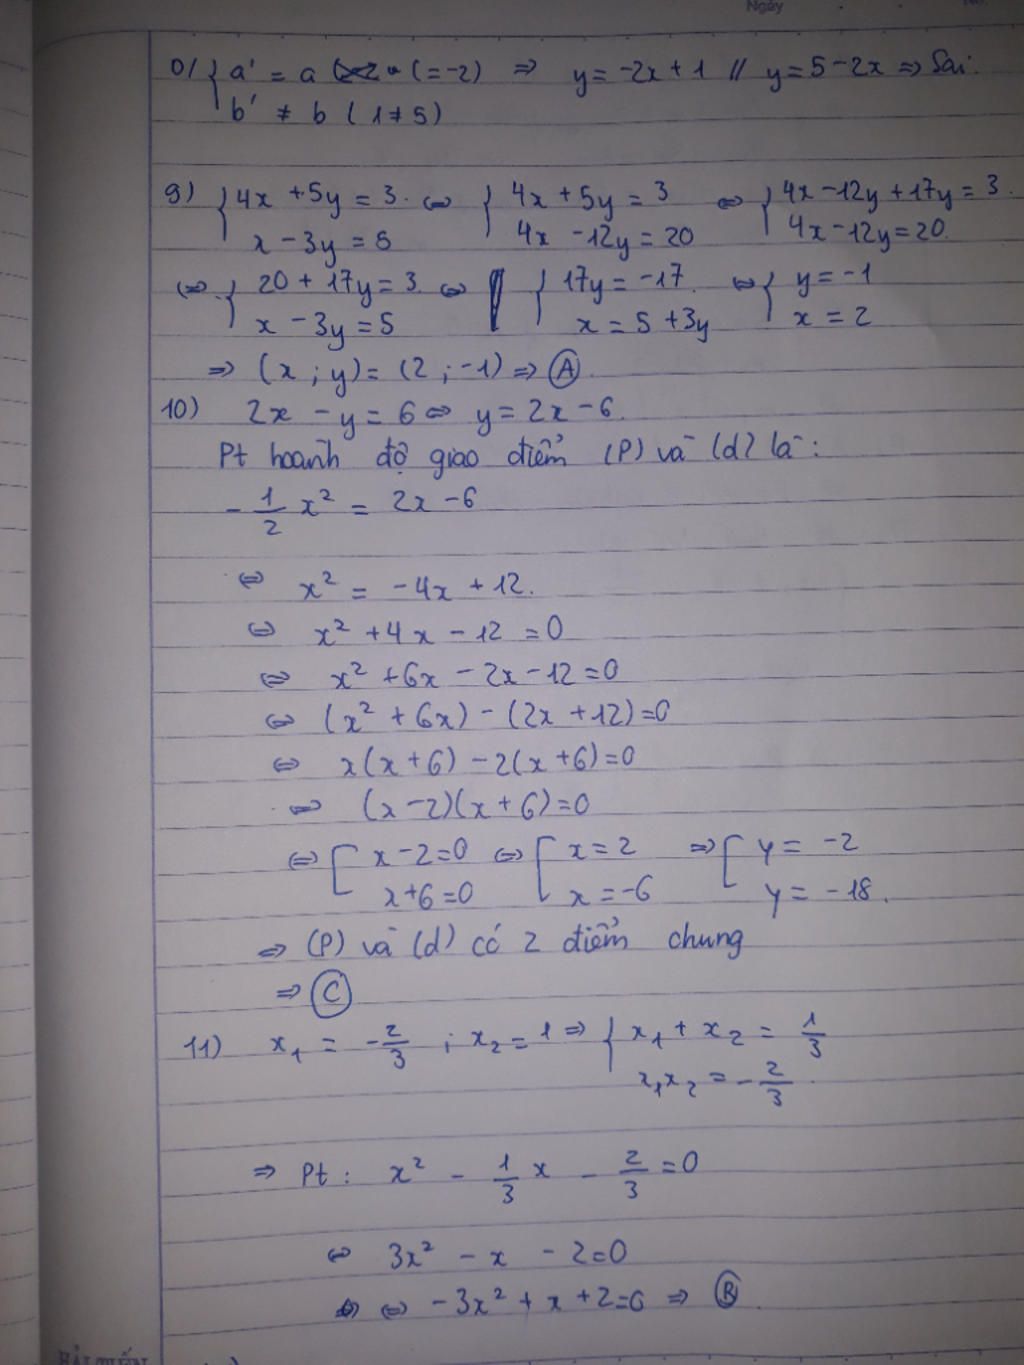 Ngày
D/ { a' = a (= -2) ⇒ y = -2x + 1 // y = 5 - 2x ⇒ Sai.
b' ≠ b ( 1 ≠ 5)
9) { 4x + 5y = 3. ⇔ { 4x + 5y = 3 ⇔ { 4x - 12y + 17y = 3.
x - 3y = 5 4x - 12y = 20 4x - 12y = 20.
⇔ { 20 + 17y = 3. ⇔ { 17y = -17. ⇔ { y = -1
x - 3y = 5 x = 5 + 3y x = 2
⇒ (x ; y) = (2 ; -1) ⇒ Ⓐ.
10) 2x - y = 6 ⇔ y = 2x - 6.
Pt hoành độ giao điểm (P) và (d) là :
- 1/2 x² = 2x - 6
⇔ x² = -4x + 12.
⇔ x² + 4x - 12 = 0
⇔ x² + 6x - 2x - 12 = 0
⇔ (x² + 6x) - (2x + 12) = 0
⇔ x(x + 6) - 2(x + 6) = 0
⇔ (x - 2)(x + 6) = 0
⇔ [ x - 2 = 0 ⇔ [ x = 2 ⇒ [ y = -2
x + 6 = 0 x = -6 y = -18.
⇒ (P) và (d) có 2 điểm chung
⇒ Ⓒ
11) x₁ = -2/3 ; x₂ = 1 ⇒ { x₁ + x₂ = 1/3
x₁x₂ = -2/3.
⇒ Pt : x² - 1/3 x - 2/3 = 0
⇔ 3x² - x - 2 = 0
⇔ -3x² + x + 2 = 0 ⇒ Ⓑ.
HẢI TIẾN